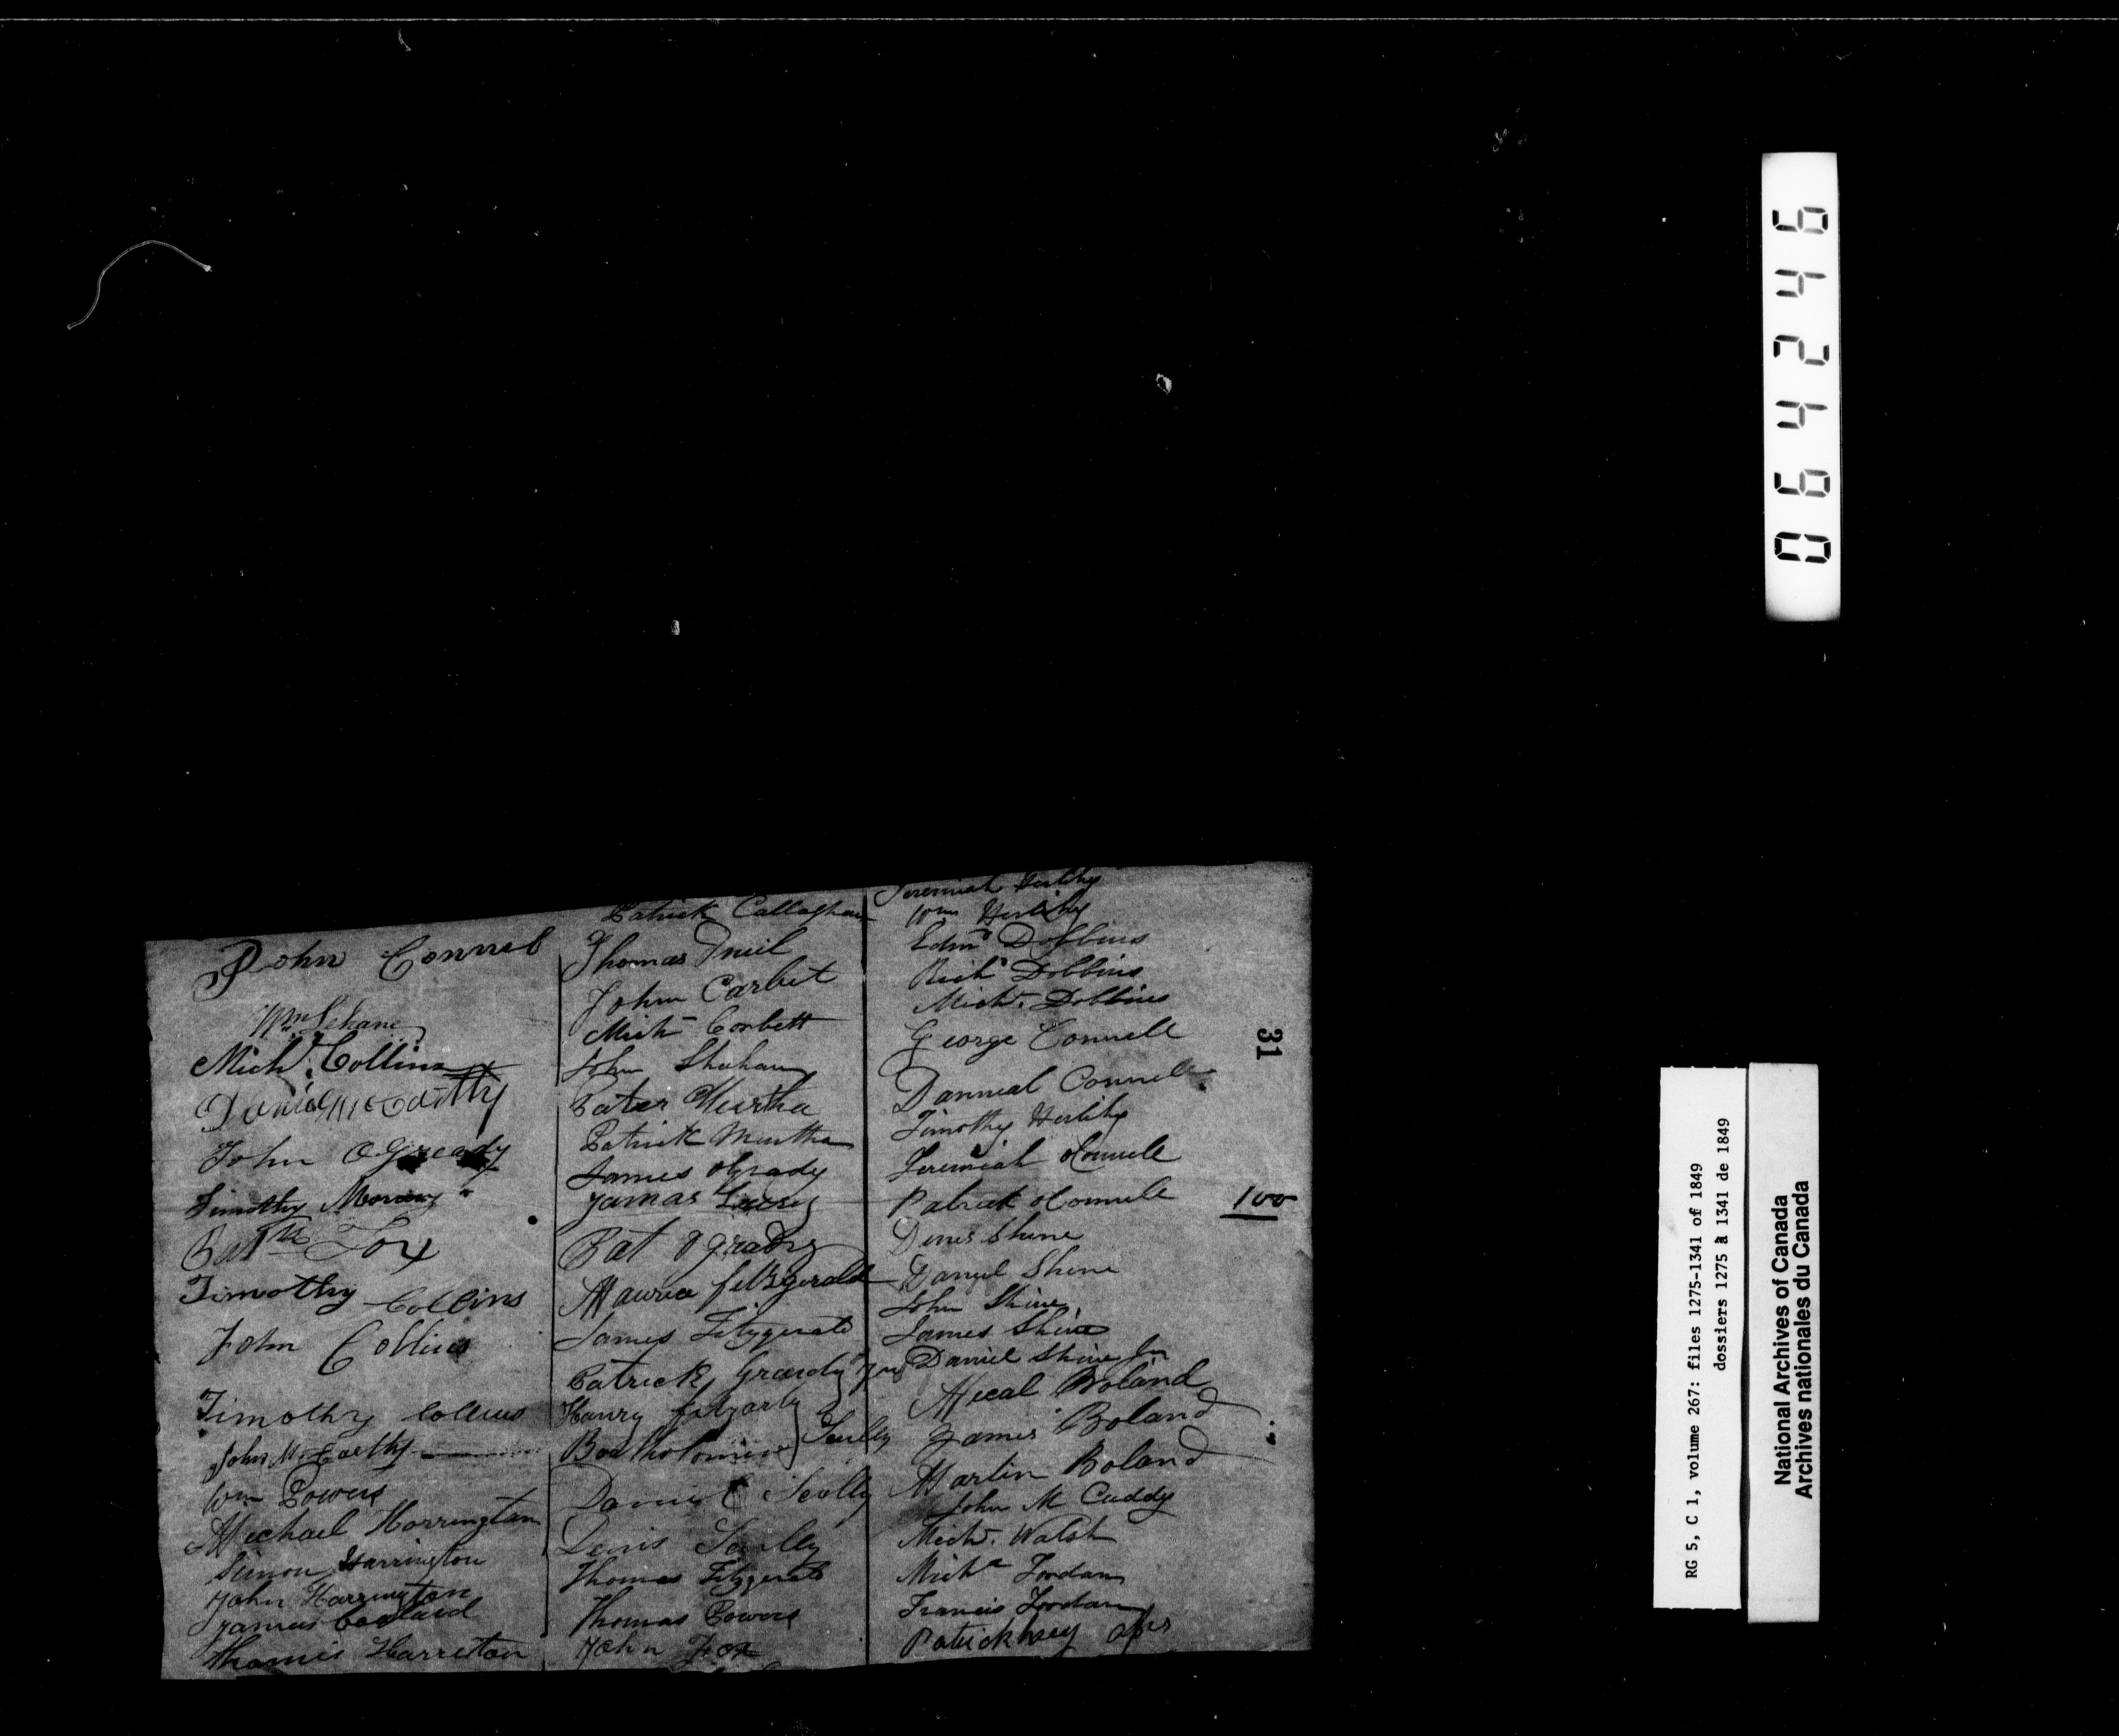 John Connel
Wm Lehane
Michl. Collins
Daniel McCartty
John OGready
Timothy Moroney
Batth Fox
Timothy Collins
John Collins
Timothy Collins
John McCarthy
Wm Powers
Michael Horrington
Simon Harrington
John Harrington
James
Thomis Harreton
Patrick Callaghan
Thomas Oneil
John Carbet
Mich Corbett
John Shehan
Pater Murtha
Patrick Murtha
James OGrady
Jamas
Pat Ogrady
Maurice fitzgerald
James Fitzgerald
Patrick Graedy
Henry
Bartholomew Scully
Daniel Scully
Denis Scully
Thomas Fitzgerald
Thomas Powers
John Fox
Jeremiah Herlihy
Wm Herlihy
Edmd Dobbins
Richd Dobbins
Michl. Dobbins
George Connell
Danneal Connell
Timothy Herlihy
Jeremiah oConnell
Patrick oConnell
Denis Shine
Daniel Shine
John Shine
James Shine
Daniel Shine Jn
Mical Boland
James Boland
Martin Boland
John McCuddy
Michl. Walsh
Michl Jordan
Francis Jordan
Patrick
31
100
064246
RG 5, C 1, volume 267: files 1275-1341 of 1849
dossiers 1275 à 1341 de 1849
National Archives of Canada
Archives nationales du Canada